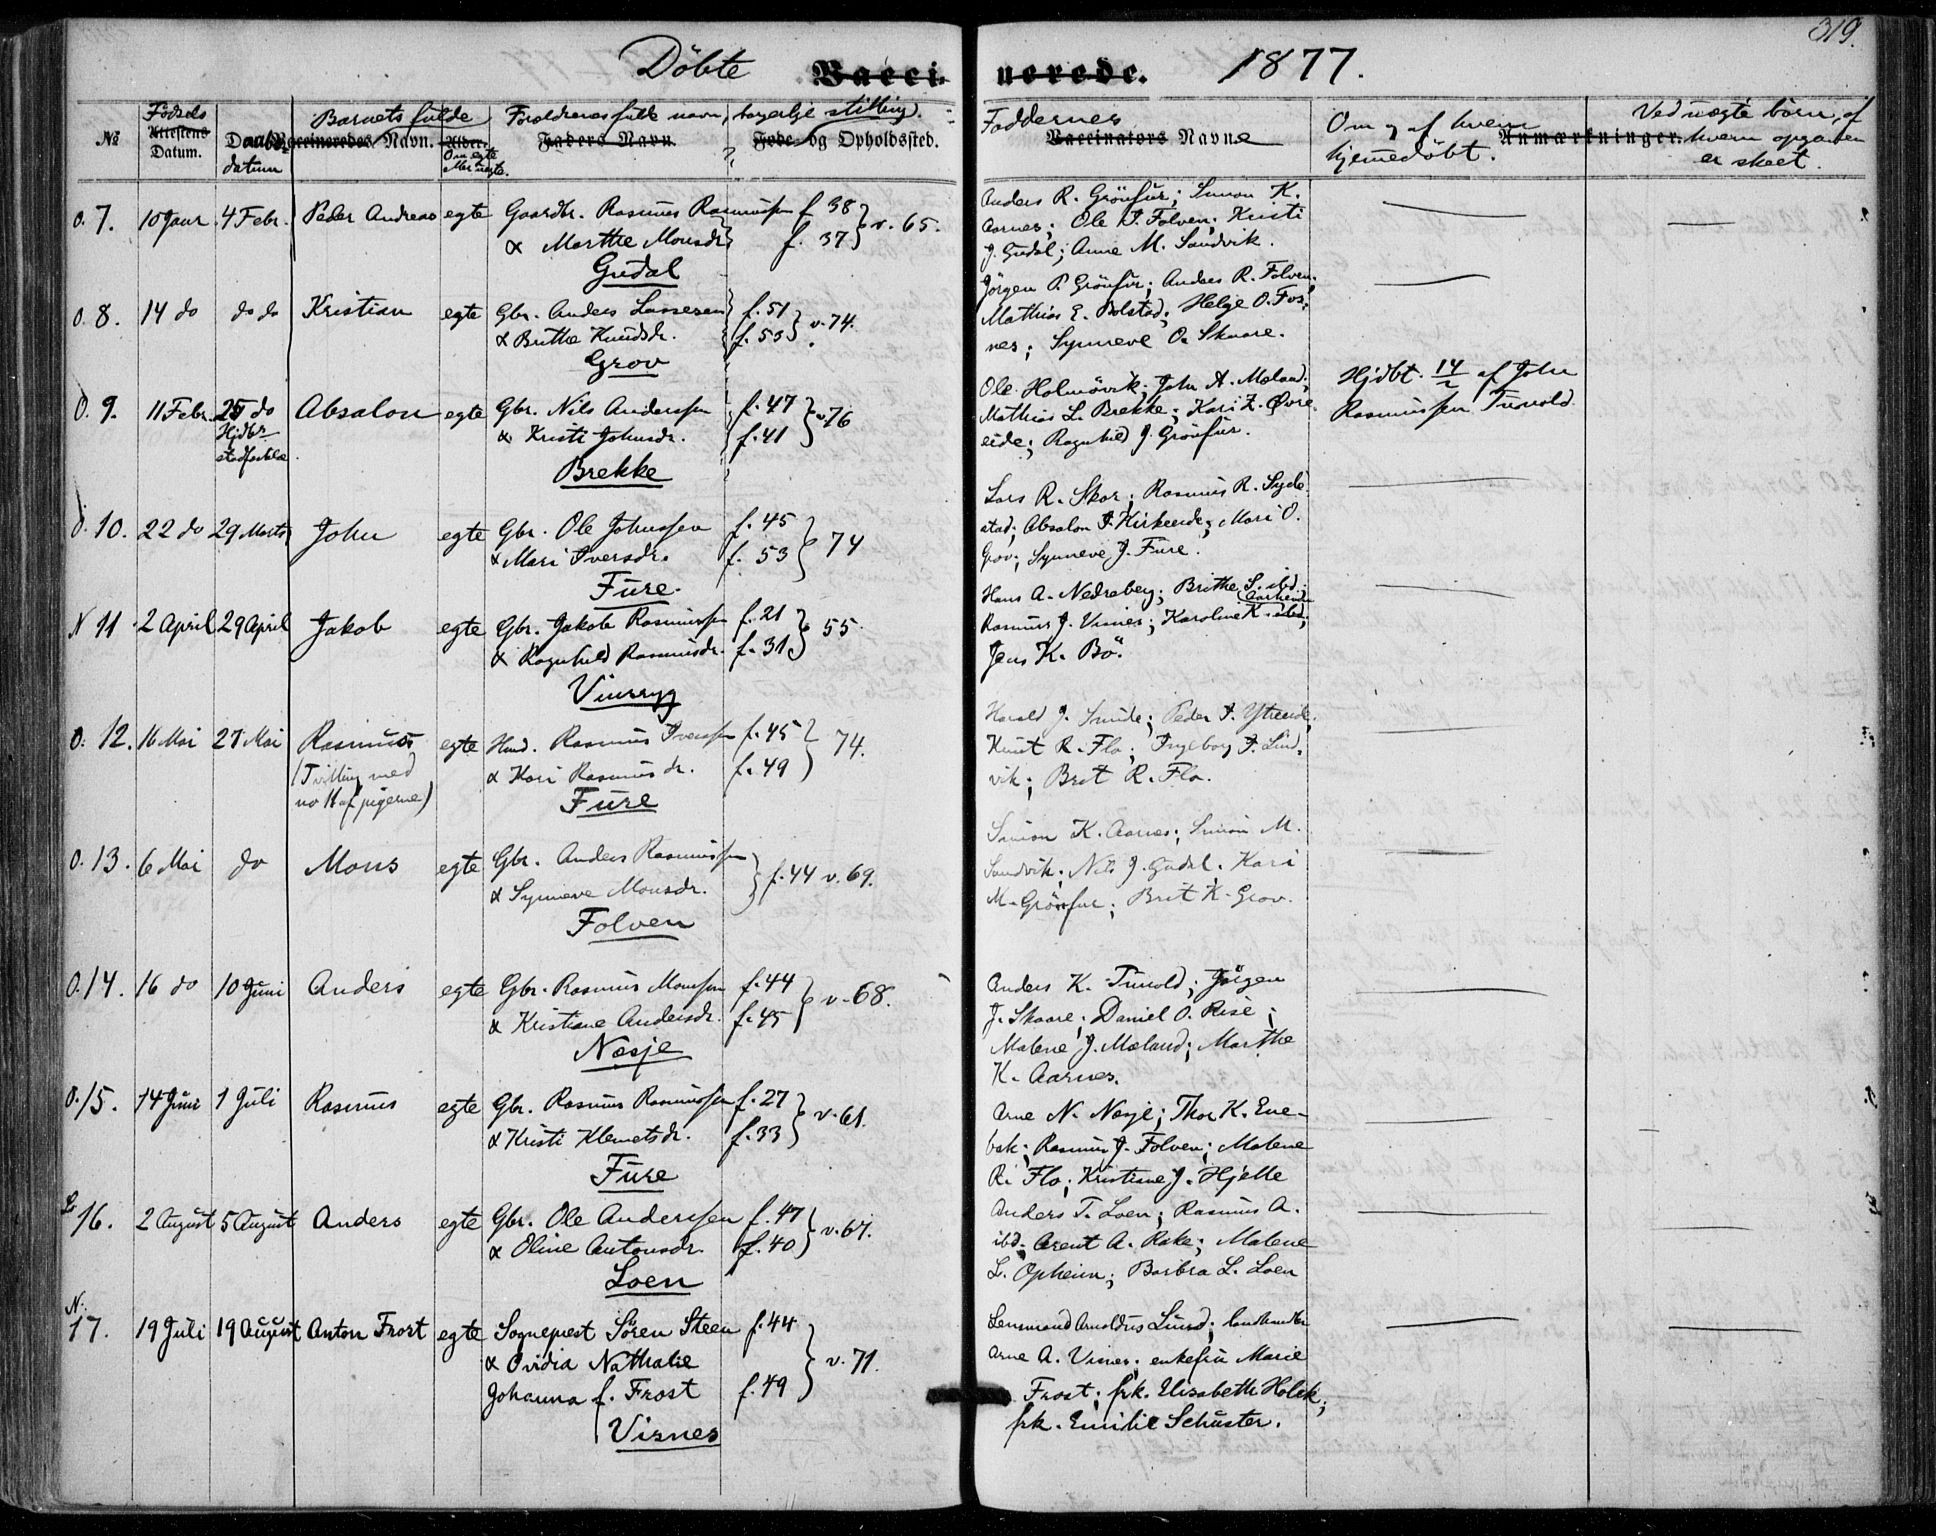 319.
Döbte Vacci- nerede. 1877.
No
Fødsels
Attestens
Datum.
Daabs-
datum
Barnets fulde
Vaccineredes Navn.
Alder.
Om egte
eller uegte.
Forældrenes fulde navn, borgerlje stilling.
Faders Navn.
Føde- og Opholdssted.
Faddernes
Vaccinators Navne
Om og af hvem
hjemmedöbt.
Anmærkninger.
Ved uegte börn, af
hvem opgaven
er skeet.
O. 7. 10 Januar 4 Febr. Peder Andreas egte Gaardbr. Rasmus Rasmussen f. 38
& Marthe Monsdr. f. 37 v. 65.
Gudal
Anders R. Grönfur; Simon K.
Aarnes; Ole I. Folven; Kristi
J. Gudal; Anne M. Sandvik.
O. 8. 14 do do do Kristian egte Gbr. Anders Lassesen f. 51
& Brithe Knudsdr. f. 53 v. 74.
Grov
Jörgen P. Grönfur; Anders R. Folven;
Mathias E. Bolstad; Helge O. Fos-
nes; Synneve O. Skaare.
O. 9. 11 Febr. 25 do Absalon egte Gbr. Nils Anderssen f. 47
Hjdbn
stadfæstelse
& Kristi Johnsdr. f. 41 v. 76
Brekke
Ole Holmövik; John A. Mæland;
Mathias L. Brekke; Kari Z. Øvre
eide; Ragnhild J. Grönfur.
Hjdbt. 14/2 af John
Rasmussen Tunold.
O. 10. 22 do 29 Marts John egte Gbr. Ole Johnssen f. 45
& Mari Iversdr. f. 53 74
Fure.
Lars R. Skor; Rasmus R. Syde
stad; Absalon I. Kirkeeide; Mari O.
Grov; Synneve J. Fure.
N 11. 2 April 29 April Jakob egte Gbr. Jakob Rasmussen f. 21
& Ragnhild Rasmusdr. f. 31 55.
Vinsryg
Hans A. Nedreberg; Brithe S. ibd;
Rasmus J. Visnes; Karoline K. ibd;
Jens K. Bö.
O. 12. 16 Mai 27 Mai Rasmus egte Huusd. Rasmus Iverssen f. 45
(Tvilling med
no 11 af pigerne)
& Kari Rasmusdr. f. 49 74.
Fure
Harald J. Sunde; Peder I. Ytreeide;
Knut R. Flo; Ingeborg I. Lind-
vik; Brit R. Flo.
O. 13. 6 Mai do Mons egte Gbr. Anders Rasmussen
& Synneve Monsdr. f. 44 v. 69.
Folven
Simon K. Aarnes; Simon M.
Sandvik; Nils J. Gudal; Kari
M. Grönfur; Brit K. Grov.
O. 14. 16 do 10 Juni Anders egte Gbr. Rasmus Monssen f. 44
& Kristiane Andersdr. f. 45 v. 68.
Nesje
Anders K. Tunold; Jörgen
J. Skaare; Daniel O. Rise;
Malene J. Mæland; Marthe
K. Aarnes.
O. 15. 14 Juni 1 Juli Rasmus egte Gbr. Rasmus Rasmussen f. 27
& Kristi Klemetsdr. f. 33 v. 61.
Fure
Arne N. Nesje; Thor K. Ene-
bak; Rasmus J. Folven; Malene
R. Flo; Kristiane J. Hjelle
Lo 16. 2 August 5 August Anders egte Gbr. Ole Anderssen f. 47
& Oline Antonsdr. f. 40 v. 67.
Loen
Anders T. Loen; Rasmus A.
ibd; Arent A. Rake; Malene
L. Opheim; Barbra L. Loen
N. 17. 19 Juli 19 August Anton Frost egte Sognepræst Sören Steen f. 44
& Ovidia Nathalie
Johanna f. Frost f. 49 v. 71.
Visnes
Lensmand Arnoldus Lund; landhandler
Arne A. Visnes; enkefru Marie
Frost; frk. Elisabeth Holck;
frk. Emilie Schuster.